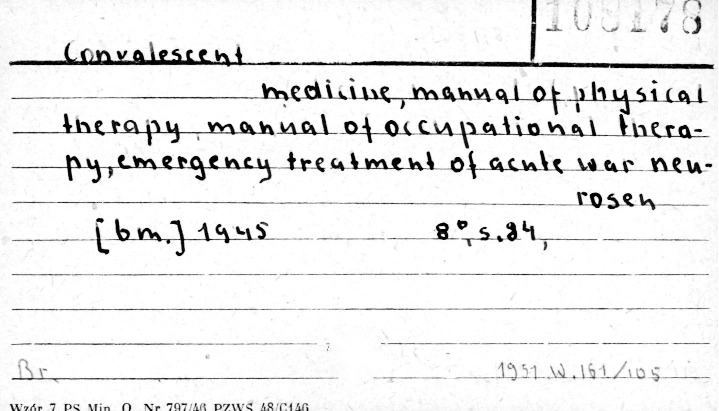 108178
Convalescent
medicine, manual of physical
therapy, manual of occupational thera-
py, emergency treatment of acute war neu-
rosen
[bm.] 1945 8°, s. 84,
Br. 1951.W.161/105
Wzór 7 PS Min. O. Nr 797/46 PZWS 48/G146